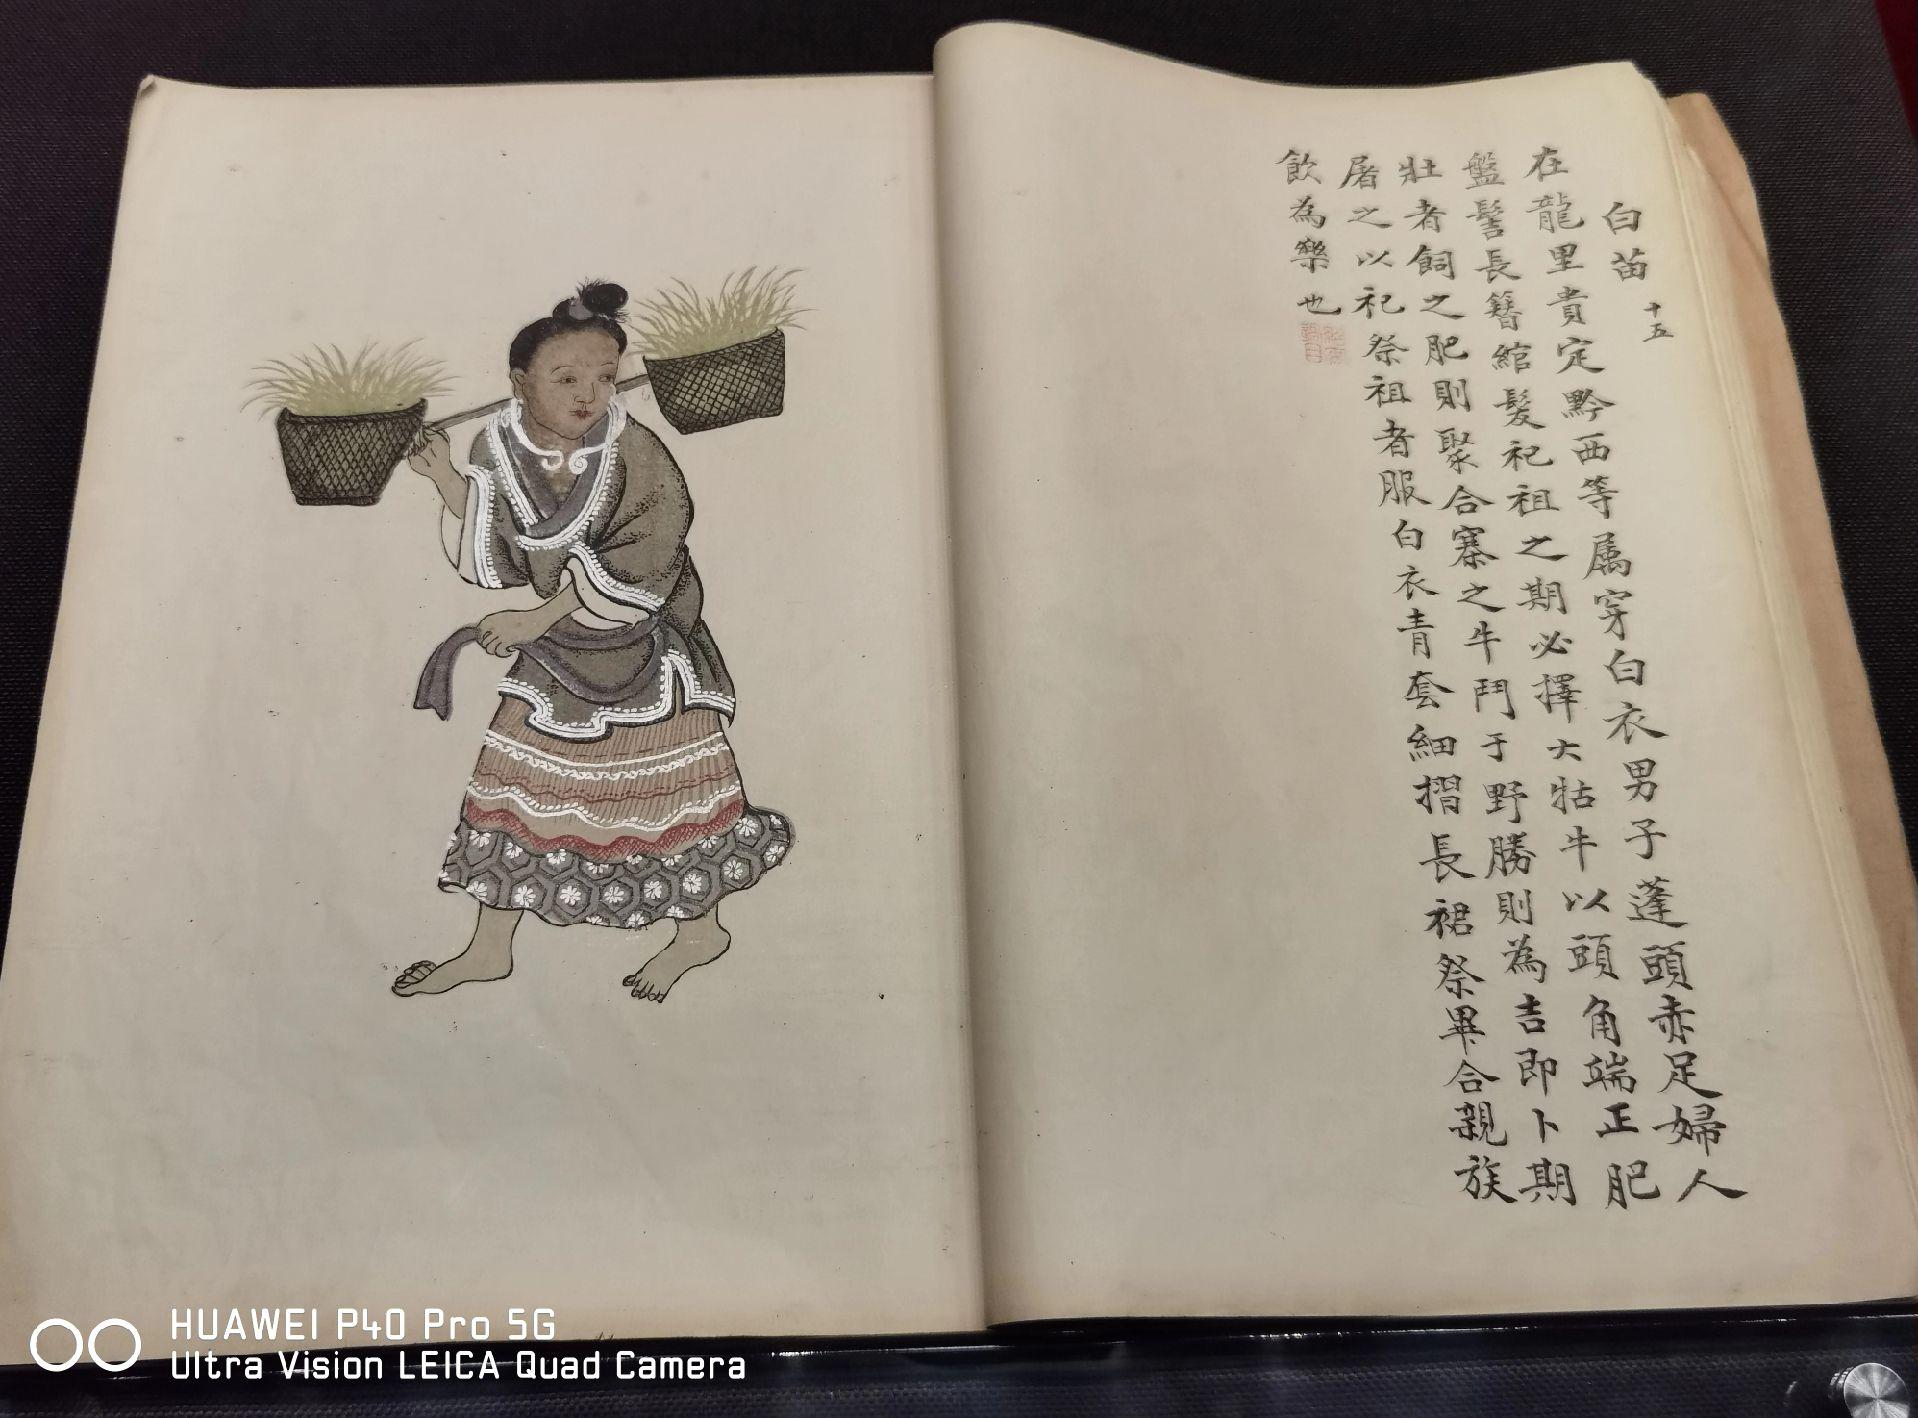 白苗 十五
在龍里貴定黔西等属穿白衣男子蓬頭赤足婦人
盤髻長簪綰髮祀祖之期必擇大牯牛以頭角端正肥
壯者飼之肥則聚合寨之牛鬥于野勝則為吉即卜期
屠之以祀祭祖者服白衣青套細摺長裙祭畢合親族
飲為樂也
HUAWEI P40 Pro 5G
Ultra Vision LEICA Quad Camera